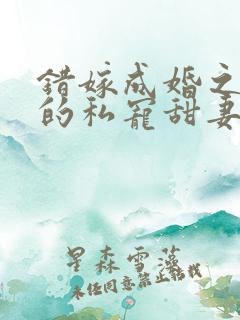 错嫁成婚之
的私宠甜妻
星森雪藻
未经同意禁止转载